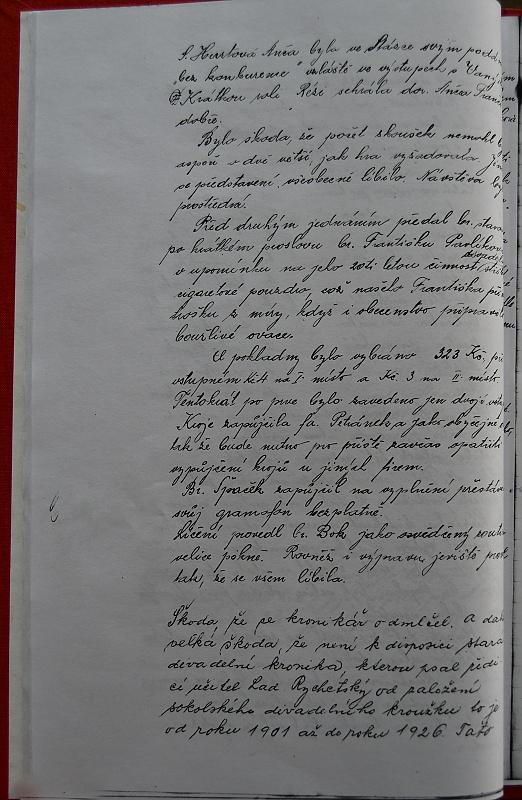 S. Hertlová Anča byla ve Stázce svým podd
"bez konkurence" zvláště ve výstupech s
Krátkou roli Rézi sehrála dor. Anča
dobře.
Bylo škoda, že počet zkoušek nemohl b
aspoň o dvě větší, jak hra vyžadovala.
se představení všeobecně líbilo. Návštěva by
prostřední.
Před druhým jednáním předal br. staro
po krátkém proslovu br. Františku Pavlíkov
v upomínku na jeho 20ti letou činnost
cigaretové pouzdro, což našelo Františka
z míry, když i obecenstvo připravilo
bouřlivé ovace.
U pokladny bylo vybráno 323 Kč, při
vstupném Kč 4 na I. místo a Kč. 3 na II. místo.
Tentokrát po prve bylo zavedeno jen dvojí
Kroje zapůjčila fa. a jako obyčejně
tak že bude nutno pro příště zavčas opatřiti
vypůjčení krojů u jiných firem.
Br. Špaček zapůjčil na vyplnění přestáv
svůj gramofon bezplatně.
Líčení provedl br. Bok jako osvědčený
velice pěkně. Rovněž i výpravu jeviště
tak, že se všem líbila.
Škoda, že se kronikář odmlčel. A dal
velká škoda, že není k disposici stará
divadelní kronika, kterou psal řídí
cí učitel Lad Rychetský od založení
sokolského divadelního kroužku to je
od roku 1901 až do roku 1926. Tato